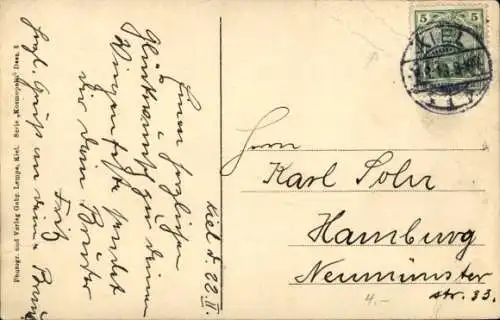 Kiel d. 22. II.
Einen herzlichen
Glückwunsch zu deinem
Wiegenfeste sendet
dir dein Bruder
Fritz
Herzl. Gruß an deine
Photogr. und Verlag Gebr. Lempe, Kiel. Serie „Kosmopolit“ Dess. 8
5 5
KIEL
Herrn
Karl Sohr
Hamburg
Neumünster
str. 33.
4.-